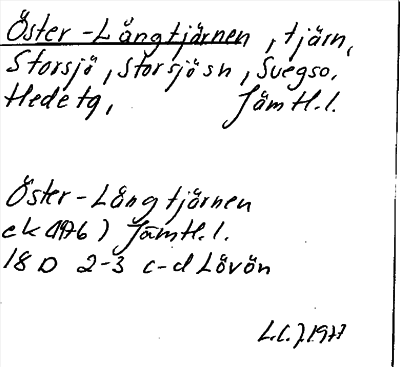 Öster-Långtjärnen, tjärn,
Storsjö, Storsjö sn, Svegso.
Hede tg, Jämtl.l.
Öster-Långtjärnen
ek (1976) Jämtl.l.
18 D 2-3 c-d Lövön
L.C.J. 1977